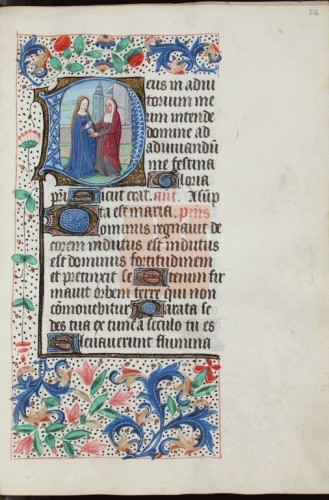 86
Deus in adiu
torium me
um intende
domine ad
adiuuandū
me festina
Gloria
pri Sicut erat. ant. Assup
ta est maria. ps̄us
Dominus regnauit de
corem indutus est indutus
est dominus fortitudinem
et precinxit se Etenim fir
mauit orbem terre qui non
cōmouebitur Parata se
des tua ex tunc a seculo tu es
Eleuauerunt flumina